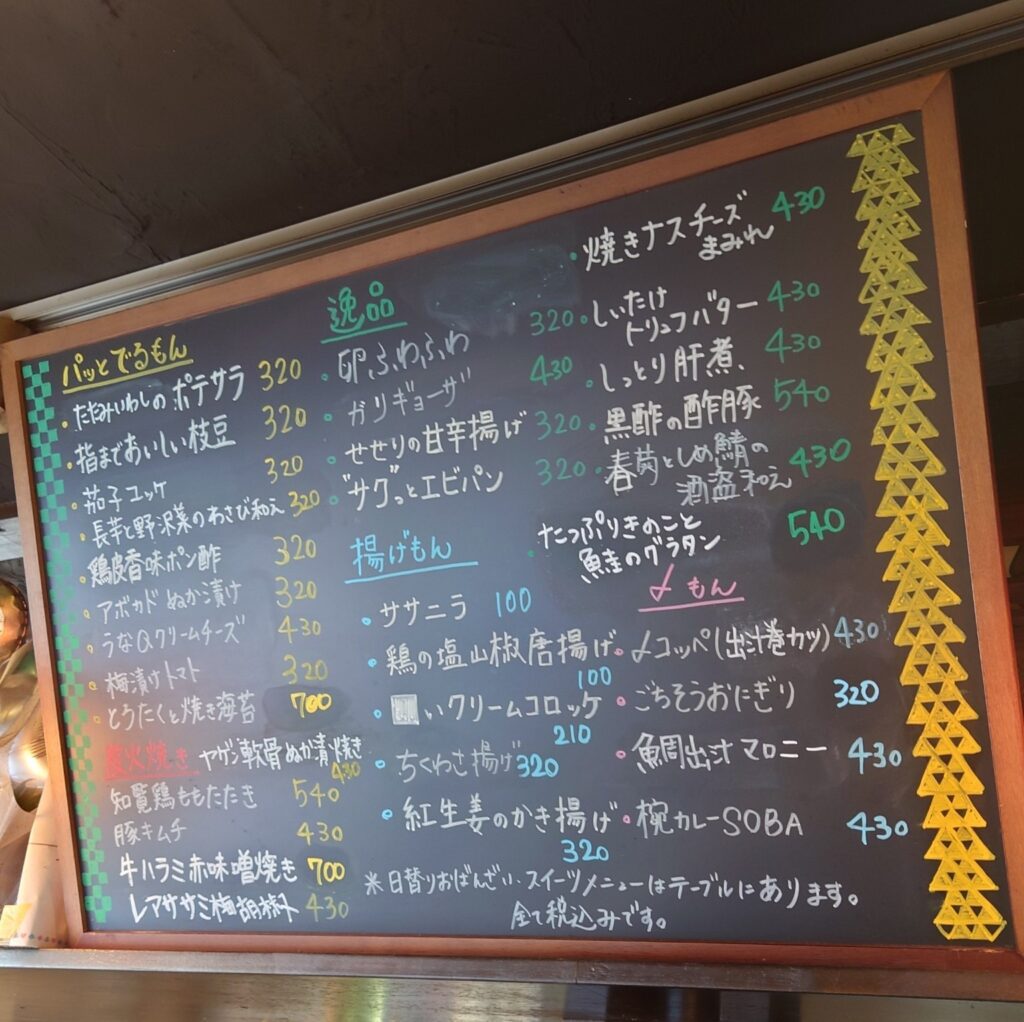 パッとでるもん
・たたみいわしの ポテサラ 320
・指までおいしい枝豆 320
・茄子ユッケ 320
・長芋と野沢菜のわさび和え 320
・鶏皮香味ポン酢 320
・アボカドぬか漬け 320
・うなQクリームチーズ 430
・梅漬けトマト 320
・とうたくと焼き海苔 700
直火焼き
ヤゲン軟骨ぬか漬焼き 430
知覧鶏ももたたき 540
豚キムチ 430
牛ハラミ赤味噌焼き 700
レアササミ梅胡椒 430
逸品
・卵ふわふわ 320
・ガリギョーザ 430
・せせりの甘辛揚げ 320
・"サグ"っとエビパン 320
・焼きナスチーズ 430
まみれ
・しいたけ 430
トリュフバター
・しっとり肝煮 430
・黒酢の酢豚 540
・春菊としめ鯖の 430
酒盗和え
・たっぷりきのこと 540
鮭のグラタン
揚げもん
・ササニラ 100
・鶏の塩山椒唐揚げ
100
・いクリームコロッケ
210
・ちくわさ揚げ 320
・紅生姜のかき揚げ
320
〆もん
・〆コッペ(出汁巻カツ) 430
・ごちそうおにぎり 320
・魚周出汁マロニー 430
・椀カレーSOBA 430
※日替りおばんざい・スイーツメニューはテーブルにあります。
全て税込みです。